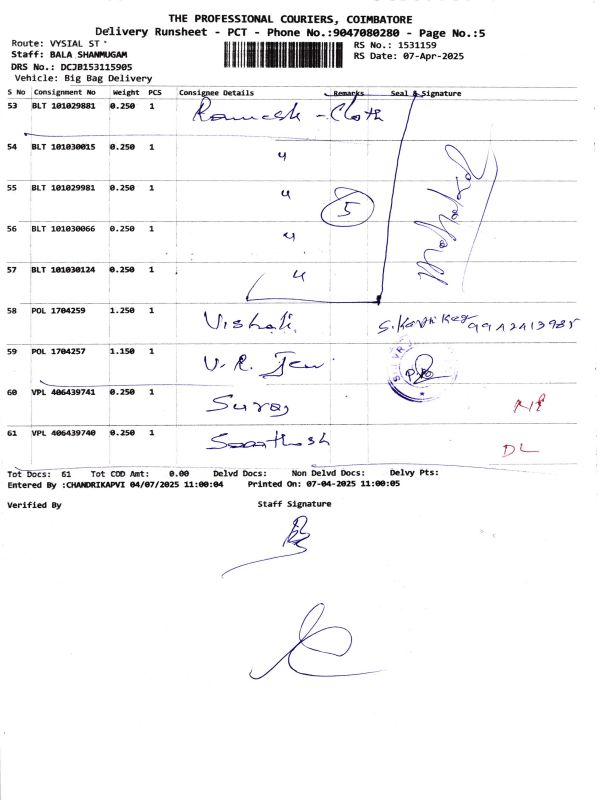 THE PROFESSIONAL COURIERS, COIMBATORE
Delivery Runsheet - PCT - Phone No.:9047080280 - Page No.:5
Route: VYSIAL ST
Staff: BALA SHANMUGAM
DRS No.: DCJB153115905
Vehicle: Big Bag Delivery
RS No.: 1531159
RS Date: 07-Apr-2025
S No Consignment No Weight PCS Consignee Details Remarks Seal & Signature
53 BLT 101029881 0.250 1 Ramesh - Cloth
54 BLT 101030015 0.250 1 "
55 BLT 101029981 0.250 1 " 5
56 BLT 101030066 0.250 1 "
57 BLT 101030124 0.250 1 "
58 POL 1704259 1.250 1 Vishal S. Karthikeg 9942413985
59 POL 1704257 1.150 1 V. R. Jew
60 VPL 406439741 0.250 1 Suraj
61 VPL 406439740 0.250 1 Santhosh DL
Tot Docs: 61 Tot COD Amt: 0.00 Delvd Docs: Non Delvd Docs: Delvy Pts:
Entered By :CHANDRIKAPVI 04/07/2025 11:00:04 Printed On: 07-04-2025 11:00:05
Verified By Staff Signature